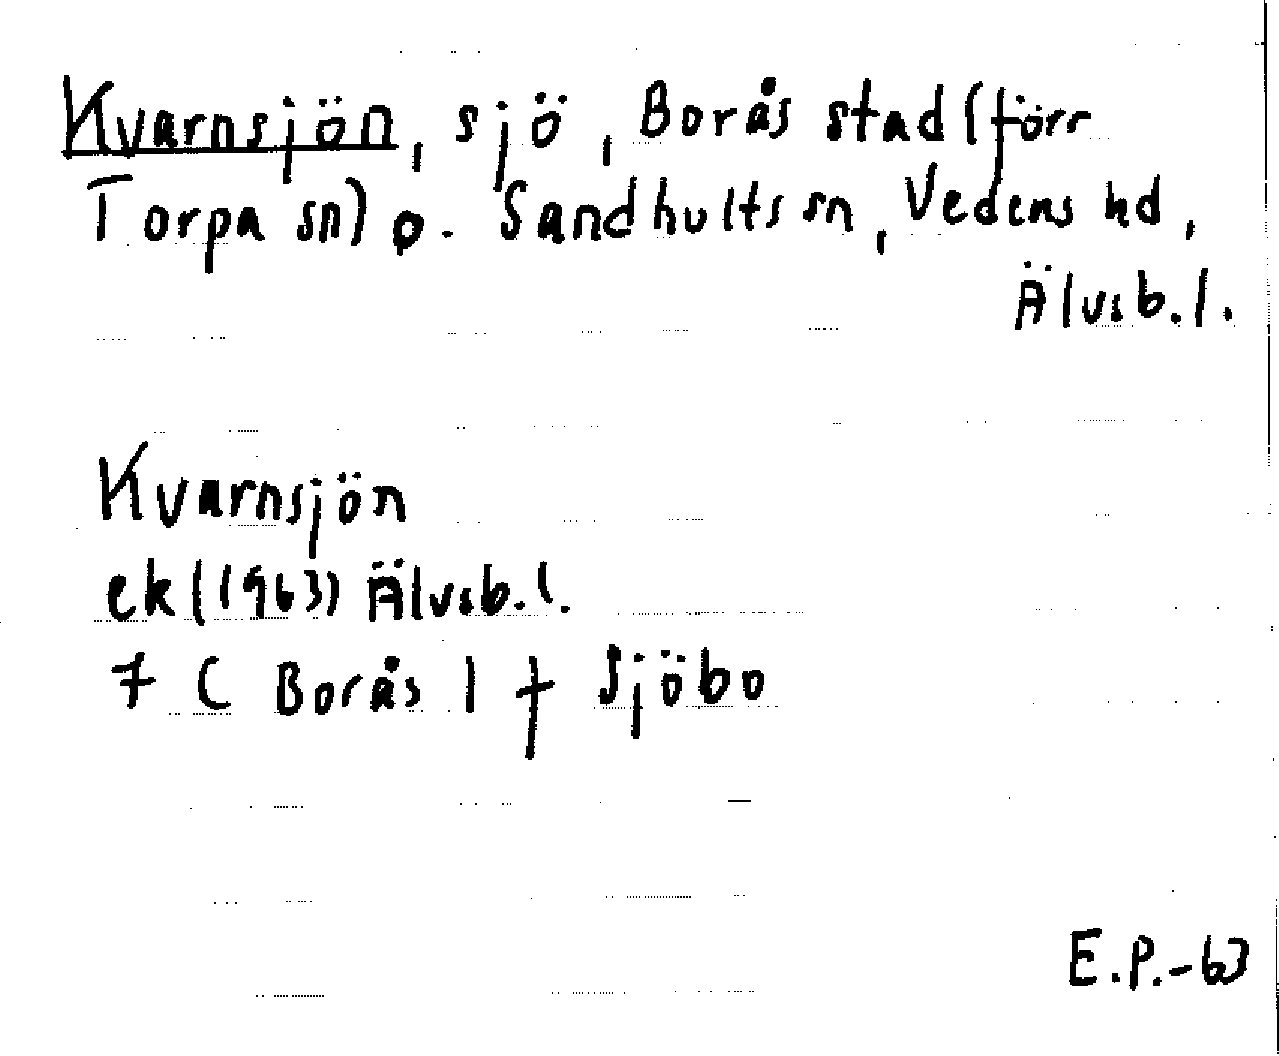 Kvarnsjön, sjö, Borås stad (förr
Torpa sn) o. Sandhults sn, Vedens hd,
Älvsb. l.
Kvarnsjön
ek (1963) Älvsb. l.
7 C Borås 1 f Sjöbo
E.P.-63